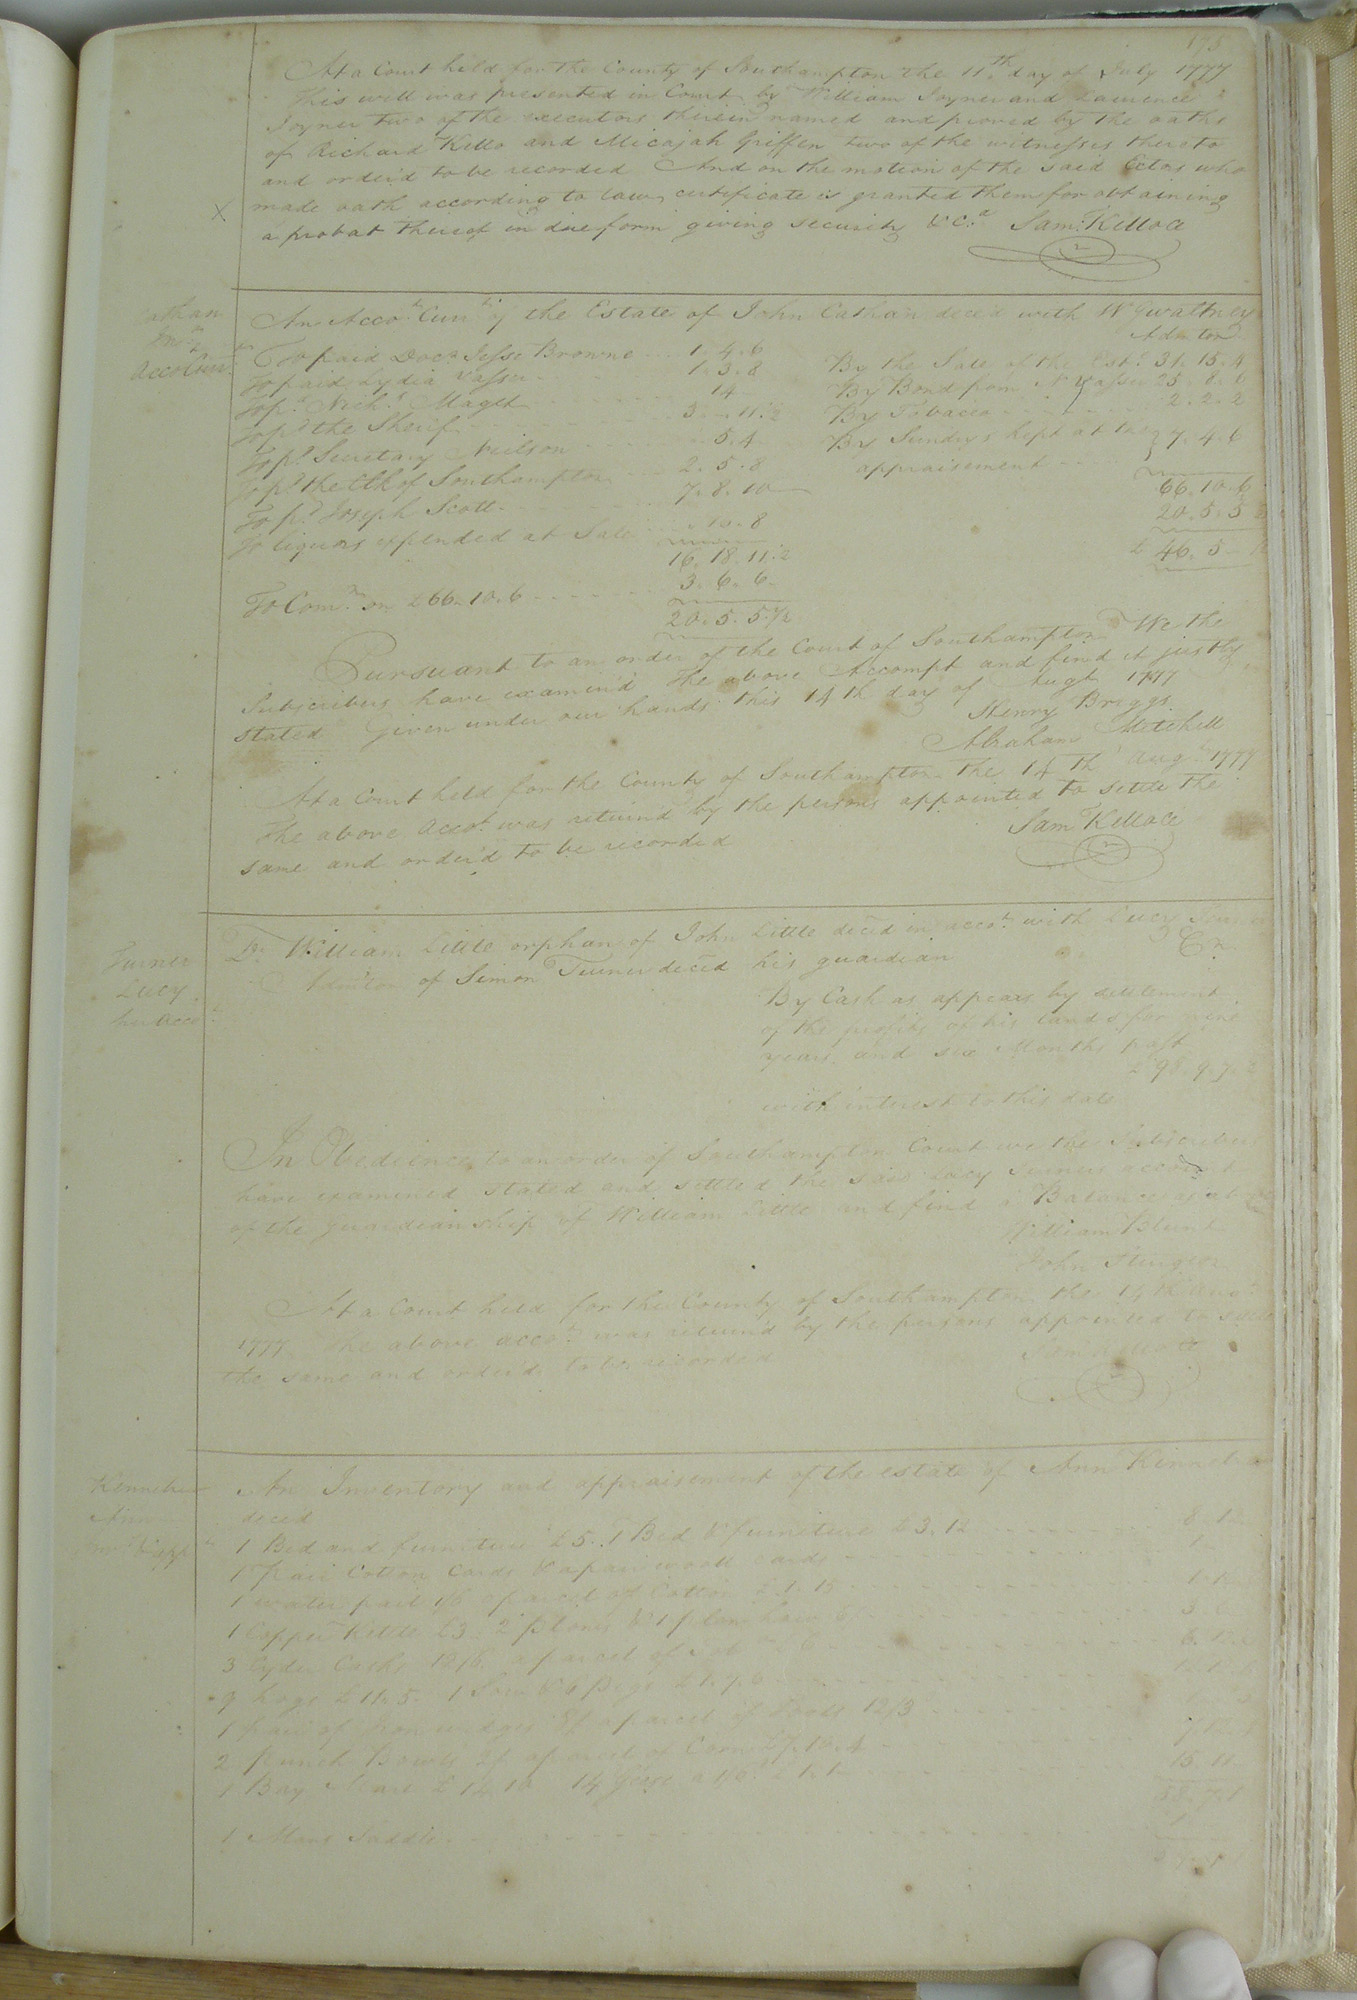 175
At a Court held for the County of Southampton the 11th day of July 1777
This will was presented in Court by William Joyner and Laurence
Joyner two of the executors therein named and proved by the oaths
of Richard Kello and Micajah Griffen two of the witnesses thereto
and order'd to be recorded And on the motion of the said Exctors who
made oath according to law, certificate is granted them for obtaining
X
a probat thereof in due form giving security &C.a Sam. Kello Ct
Cathan
Jno
Acco Curr.t
An Acco.t Curr.t of the Estate of John Cathan deced with W Gwaltney
Admtor
To paid Docr Jesse Browne 1. 4. 6
To paid Lydia Vasser 1. 3. 8
To p.d Nich.s Maget 14
To p.d the Sherif 3. 11. 1/2
To p.d Secretary Neilson 5. 4
To p.d the Clk of Southampton 2. 5. 8
To p.d Joseph Scott 7. 8. 10
To liquors expended at Sale 10. 8
16. 18. 11 1/2
To Com.n on £66. 10. 6 3. 6. 6
20. 5. 5 1/2
By the Sale of the Est.e 31. 15. 4
By Bond from N Vasser 25. 8. 6
By Tobacco 2. 2. 2
By Sundrys kept at the
appraisement 7. 4. 6
66. 10. 6
20. 5. 5 1/2
£ 46. 5 1/2
Pursuant to an order of the Court of Southampton We the
Subscribers have examin'd the above Accompt and find it justly
stated Given under our hands this 14th day of Augt 1777
Henry Briggs
Abraham Mitchell
At a Court held for the County of Southampton the 14th Aug.t 1777
The above Acco.t was return'd by the persons appointed to settle the
same and order'd to be recorded Sam Kello Ct
Turner
Lucy
her Acco.t
Dr William Little orphan of John Little deced in acco.t with Lucy Turner
Admtor of Simon Turner deced his guardian Cr
By Cash as appears by settlement
of the profits of his lands for nine
years and six Months past
£ 98. 9. 7 1/2
with interest to this date
In Obedience to an order of Southampton Court we the Subscribers
have examined stated and settled the said Lucy Turners account
of the guardianship of William Little and find a Balance as above
William Blunt
John
At a Court held for the County of Southampton the 14th Aug.t
1777 The above acco.t was return'd by the persons appointed to settle
the same and order'd to be recorded Sam Kello Ct
Ann
An Inventory and appraisement of the estate of Ann
deced
1 Bed and furniture £5. 1 Bed & furniture £3. 12 8. 12
1 Pair Cotton Cards & a pair wooll Cards
1 water pail 1/6 a parcel of Cotton £1. 15
1 Copper Kettle £3. 2
3 Cyder Casks 12/6 a parcel of
9 hogs £11. 5 1 Sow & 6 Pigs £1. 7. 6
1 pair of Iron wedges a parcel of Tools 12/3
2 Punch Bowls a parcel of Corn £7. 10. 4
1 Bay Mare £14. 10 14 Geese £1. 1 15. 11
1 Mans Saddle